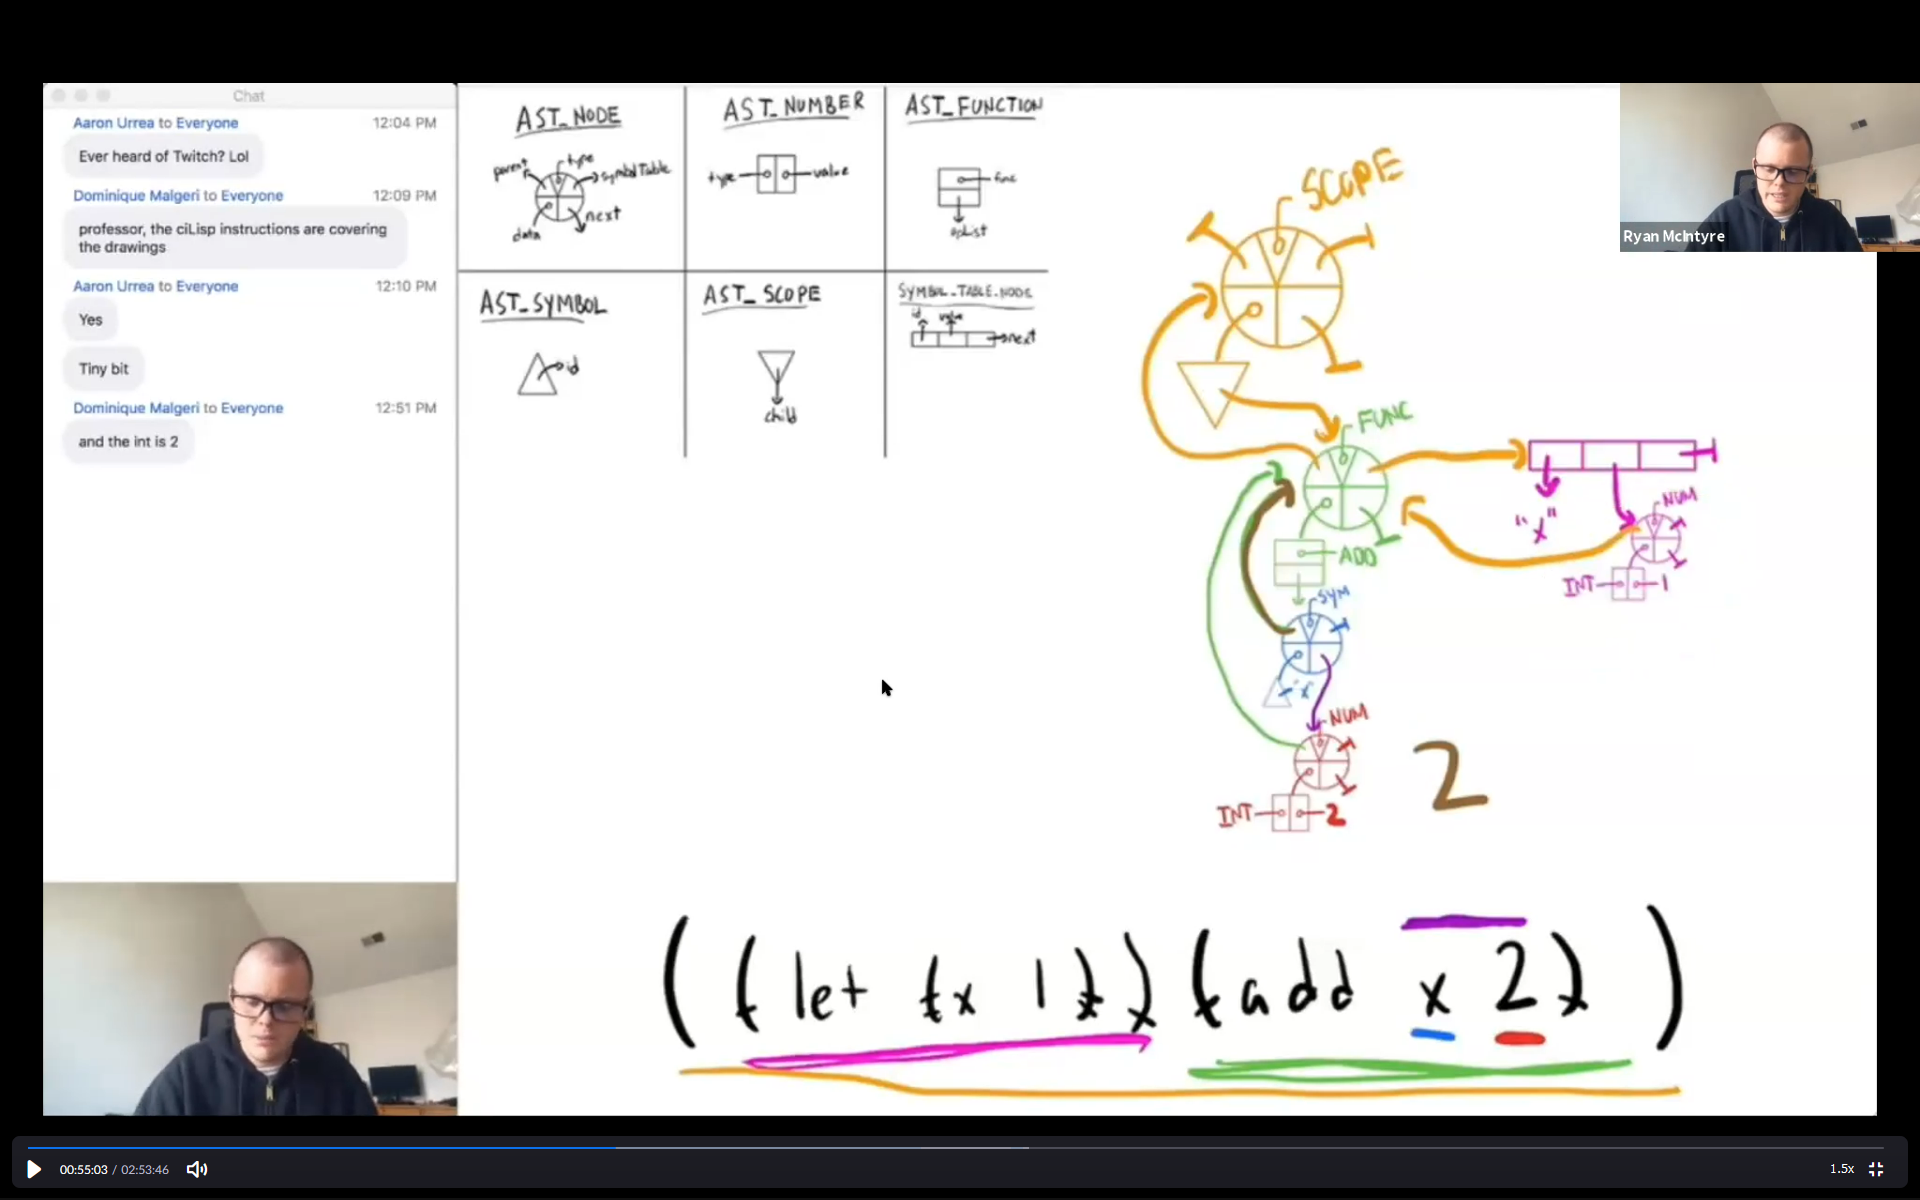 Chat
Aaron Urrea to Everyone 12:04 PM
Ever heard of Twitch? Lol
Dominique Malgeri to Everyone 12:09 PM
professor, the ciLisp instructions are covering
the drawings
Aaron Urrea to Everyone 12:10 PM
Yes
Tiny bit
Dominique Malgeri to Everyone 12:51 PM
and the int is 2
AST_NODE
parent
type
symbolTable
next
data
AST_NUMBER
type
value
AST_FUNCTION
func
opList
AST_SYMBOL
id
AST_SCOPE
child
SYMBOL_TABLE_NODE
id
value
next
SCOPE
FUNC
ADD
"x"
NUM
INT
1
SYM
"x"
NUM
INT
2
2
((let (x 1)) (add x 2))
Ryan McIntyre
00:55:03 / 02:53:46
1.5x